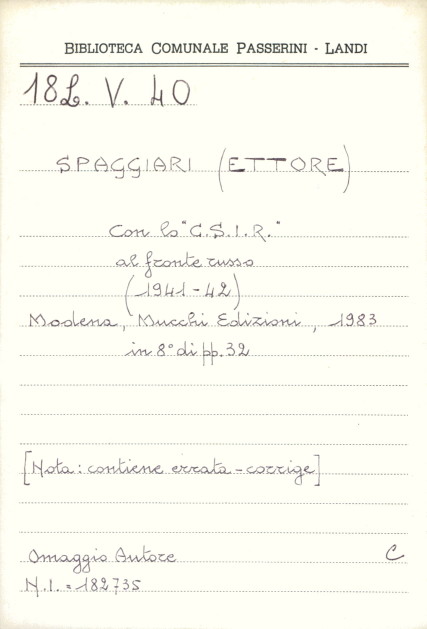 BIBLIOTECA COMUNALE PASSERINI - LANDI
18L. V. 40
SPAGGIARI (ETTORE)
Con lo "C.S.I.R."
al fronte russo
(1941-42)
Modena, Mucchi Edizioni, 1983
in 8° di pp. 32
[Nota: contiene errata-corrige]
Omaggio Autore C
N.I. = 182735